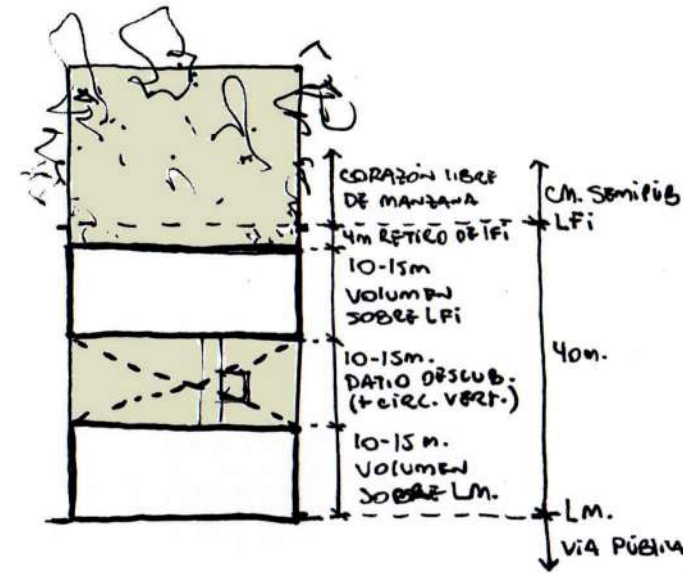 CORAZÓN LIBRE
DE MANZANA
4m RETIRO DE LFi
10-15m
VOLUMEN
SOBRE LFi
10-15m.
PATIO DESCUB.
(+ CIRC. VERT.)
10-15 m.
VOLUMEN
SOBRE LM.
CM. SEMIPÚB
LFi
40m.
LM.
VÍA PÚBLICA